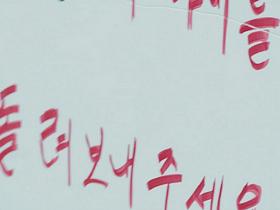 를
돌려보내주세요